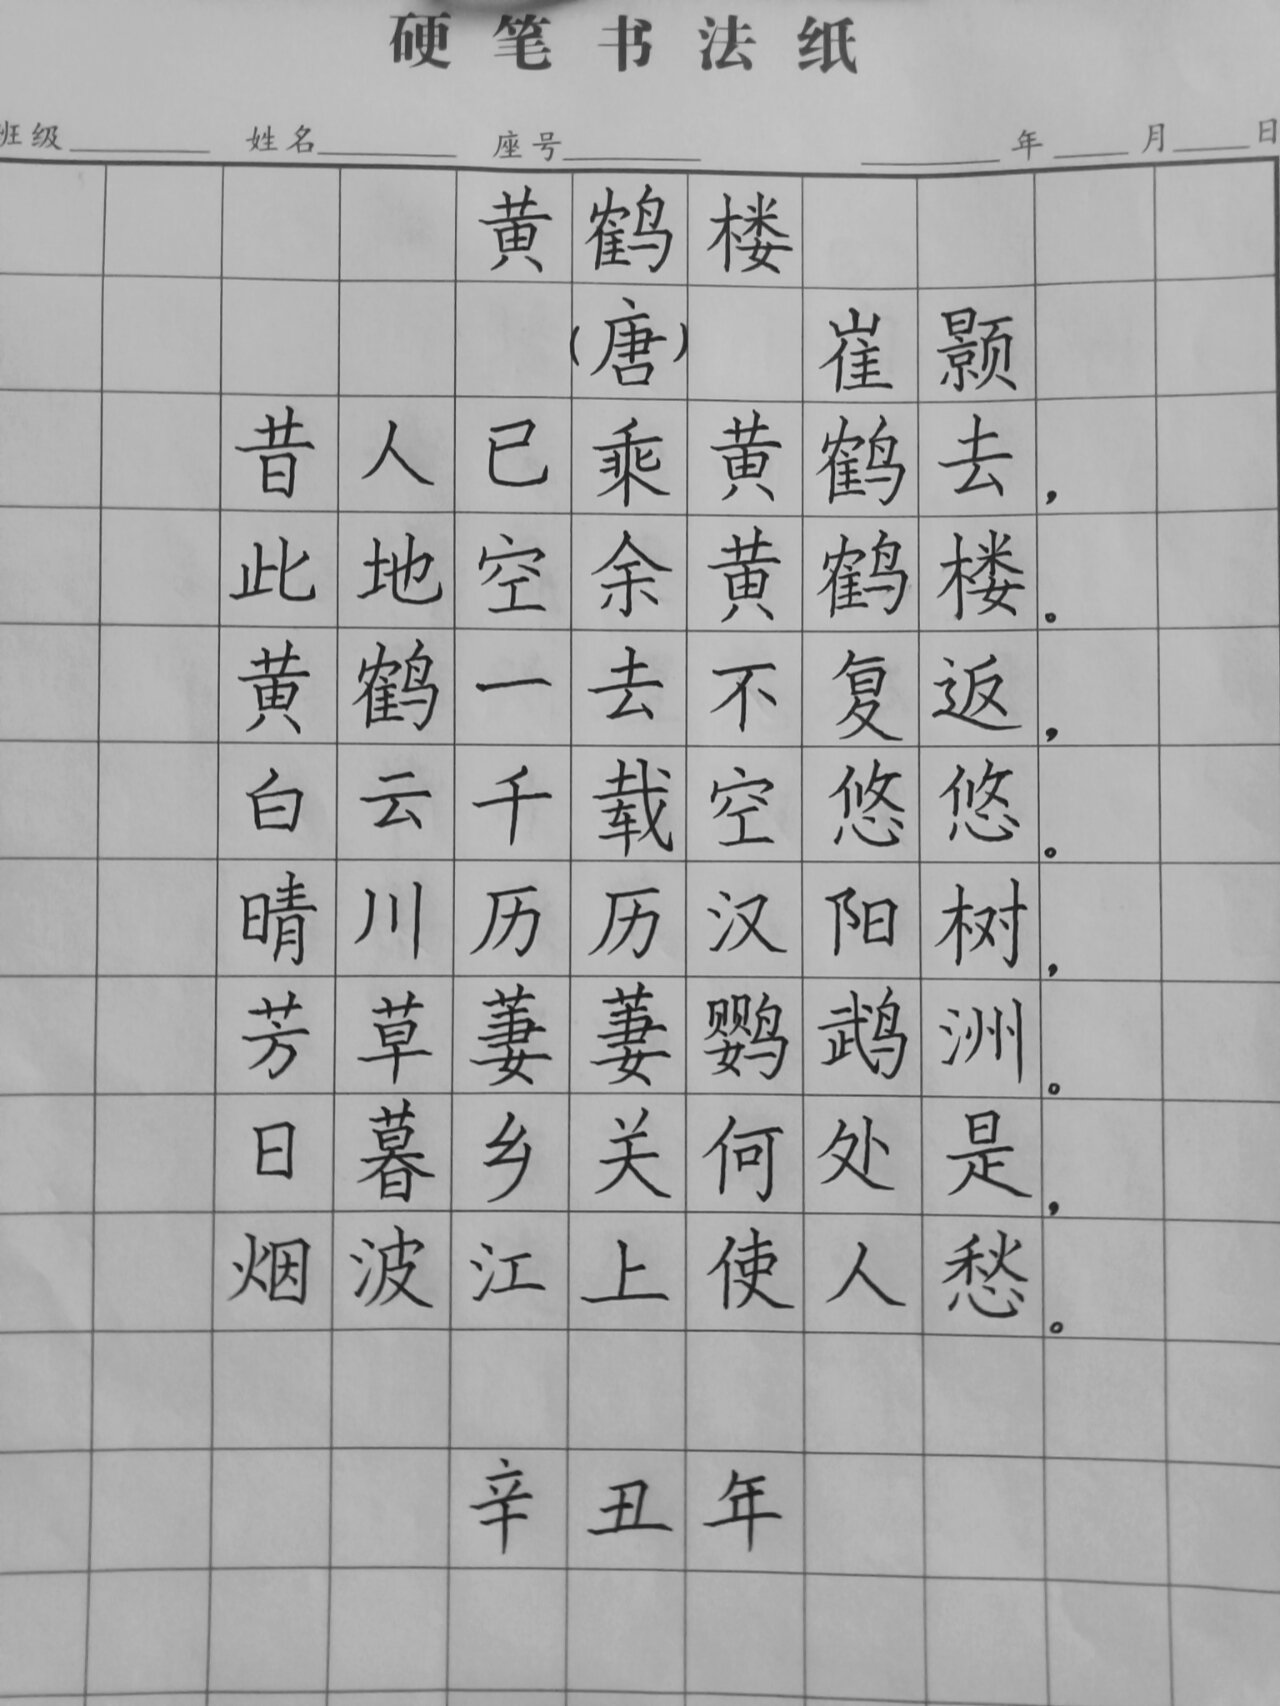 硬笔书法纸
班级 姓名 座号 年 月 日
黄鹤楼
(唐) 崔颢
昔人已乘黄鹤去，
此地空余黄鹤楼。
黄鹤一去不复返，
白云千载空悠悠。
晴川历历汉阳树，
芳草萋萋鹦鹉洲。
日暮乡关何处是，
烟波江上使人愁。
辛丑年